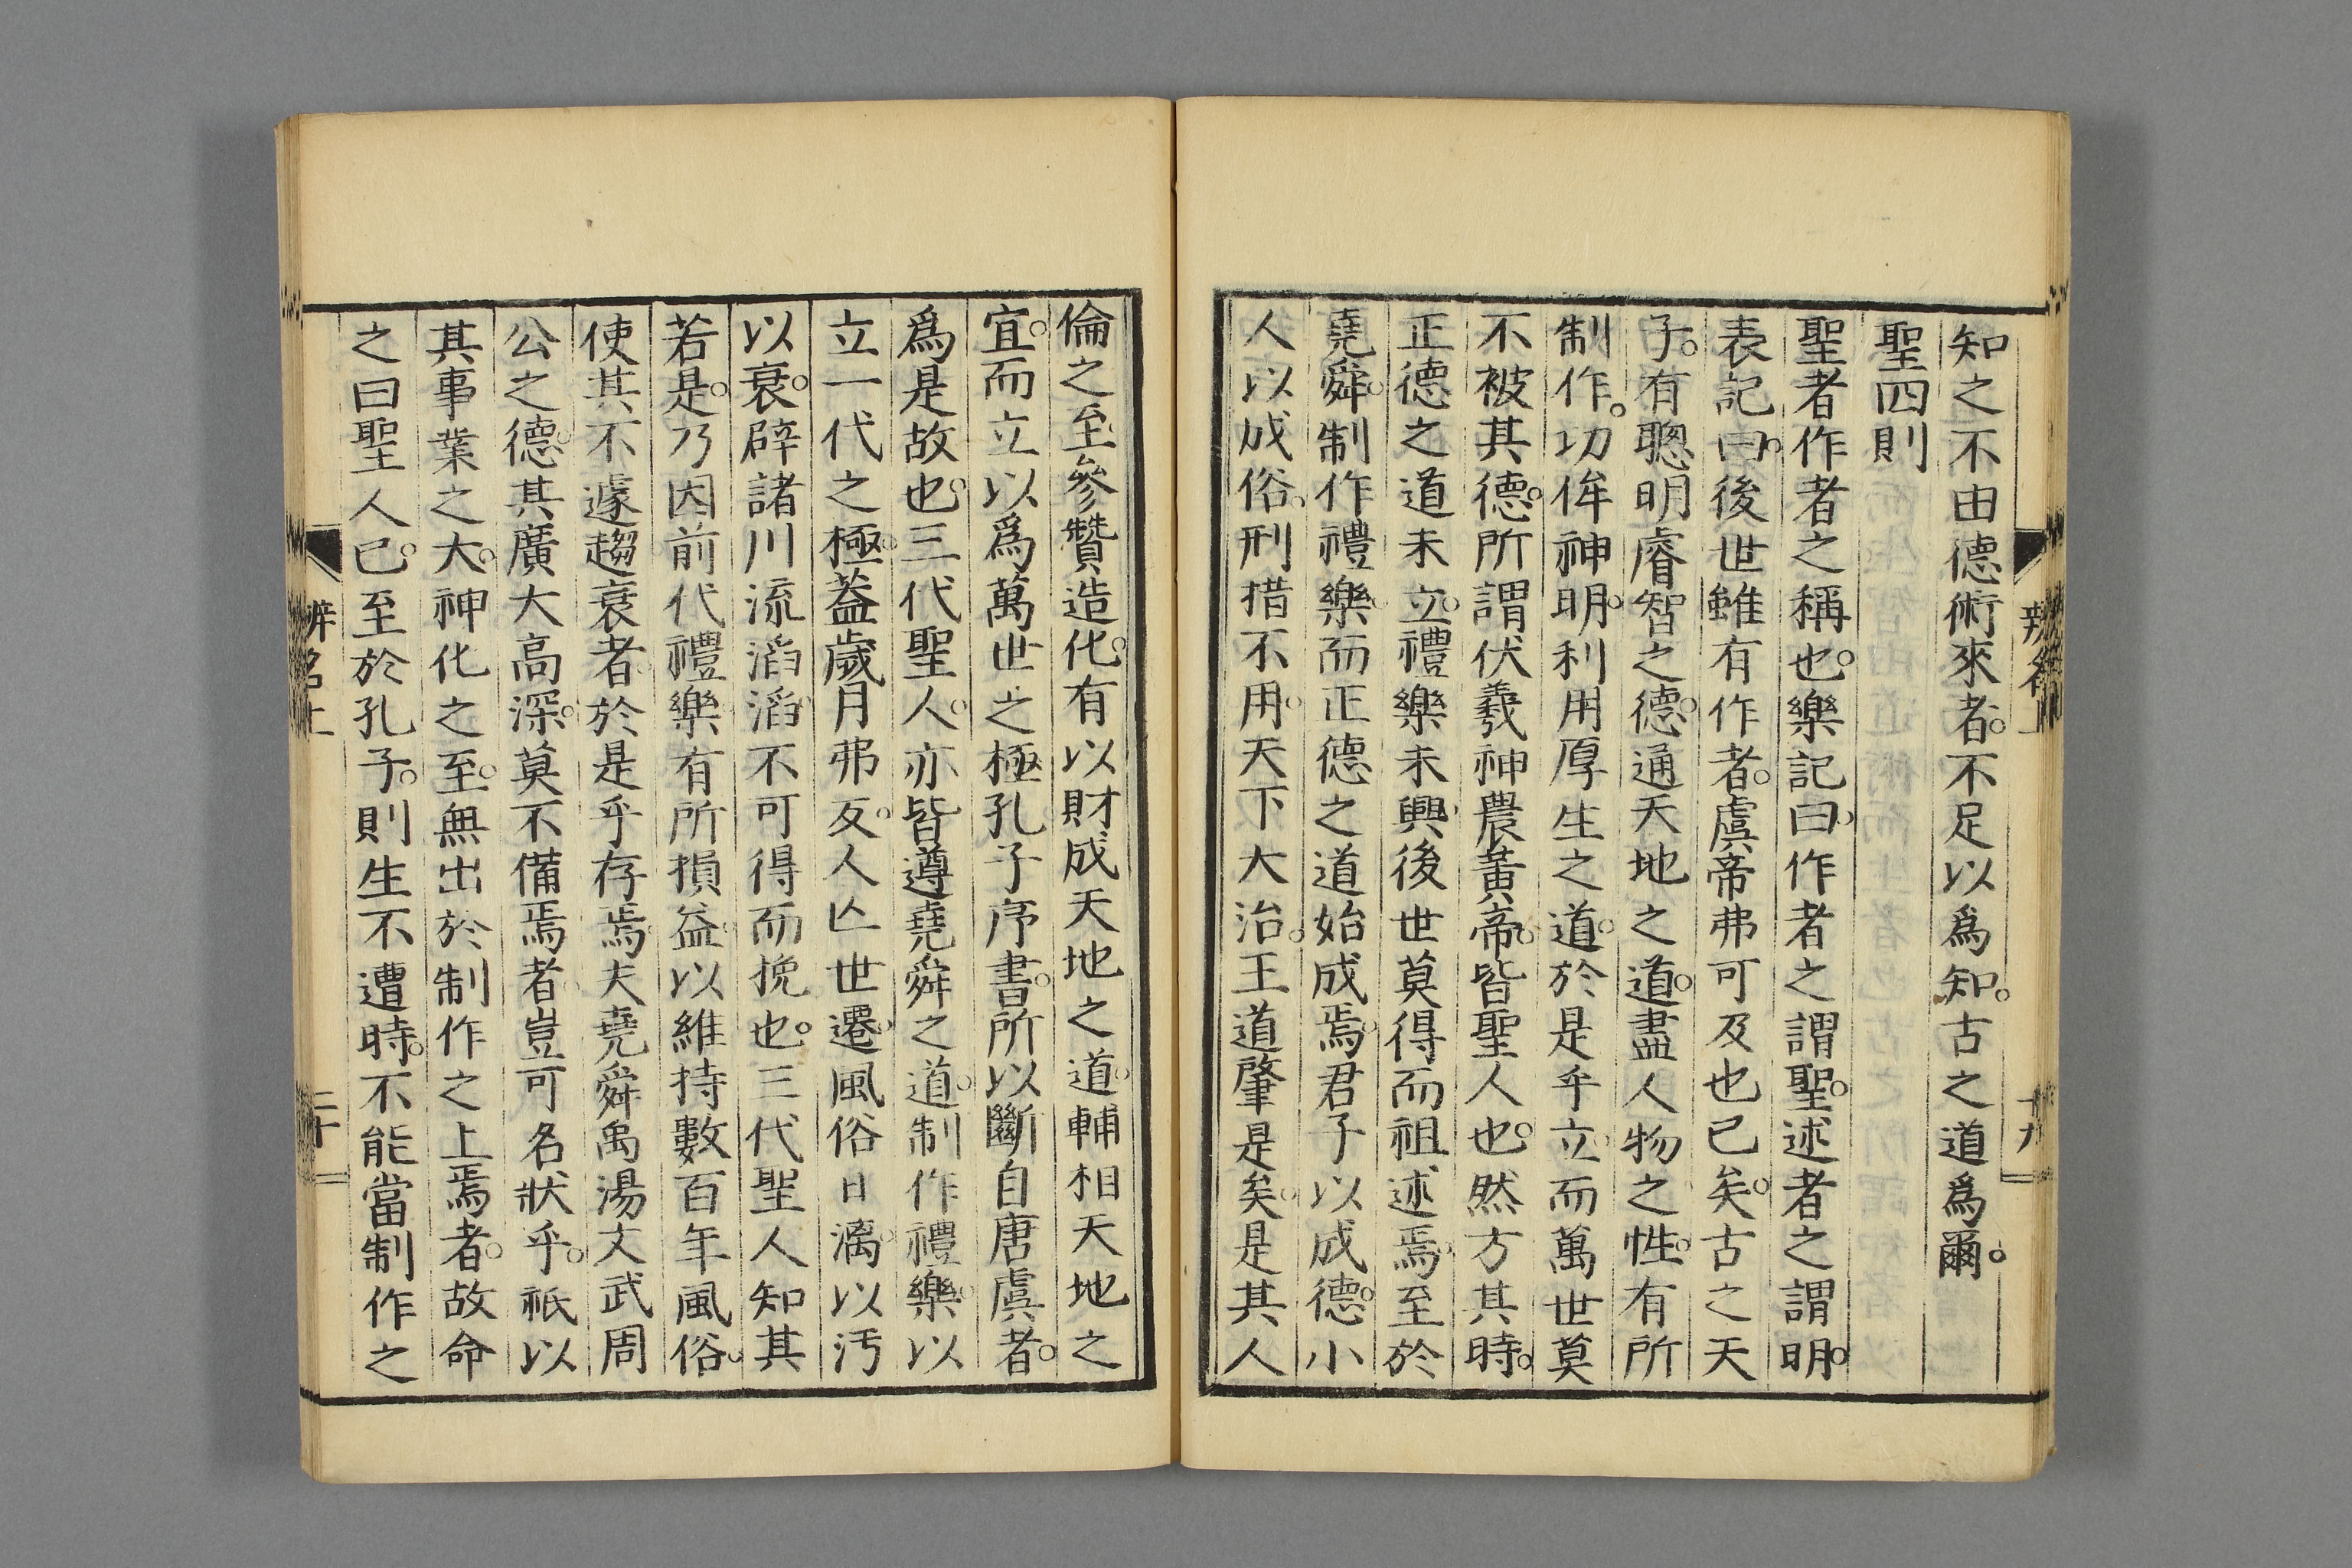 知之不由德術來者。不足以爲知。古之道爲爾。
聖四則
聖者作者之稱也。樂記曰。作者之謂聖。述者之謂明。
表記曰。後世雖有作者。虞帝弗可及也已矣。古之天
子。有聰明睿智之德。通天地之道。盡人物之性。有所
制作。功侔神明。利用厚生之道。於是乎立。而萬世莫
不被其德。所謂伏羲神農黃帝。皆聖人也。然方其時。
正德之道未立。禮樂未興。後世莫得而祖述焉。至於
堯舜。制作禮樂。而正德之道始成焉。君子以成德。小
人以成俗。刑措不用。天下大治。王道肇是矣。是其人
倫之至。參贊造化。有以財成天地之道。輔相天地之
宜。而立以爲萬世之極。孔子序書。所以斷自唐虞者。
爲是故也。三代聖人。亦皆遵堯舜之道。制作禮樂。以
立一代之極。蓋歲月弗反。人亾世遷。風俗日漓。以汚
以衰。辟諸川流滔滔。不可得而挽也。三代聖人知其
若是。乃因前代禮樂。有所損益。以維持數百年風俗。
使其不遽趨衰者。於是乎存焉。夫堯舜禹湯文武周
公之德。其廣大高深。莫不備焉者。豈可名狀乎。祇以
其事業之大。神化之至。無出於制作之上焉者。故命
之曰聖人已。至於孔子。則生不遭時。不能當制作之
辨名上
十九
辨名上
二十